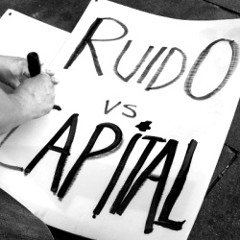 RUIDO
VS
CAPITAL